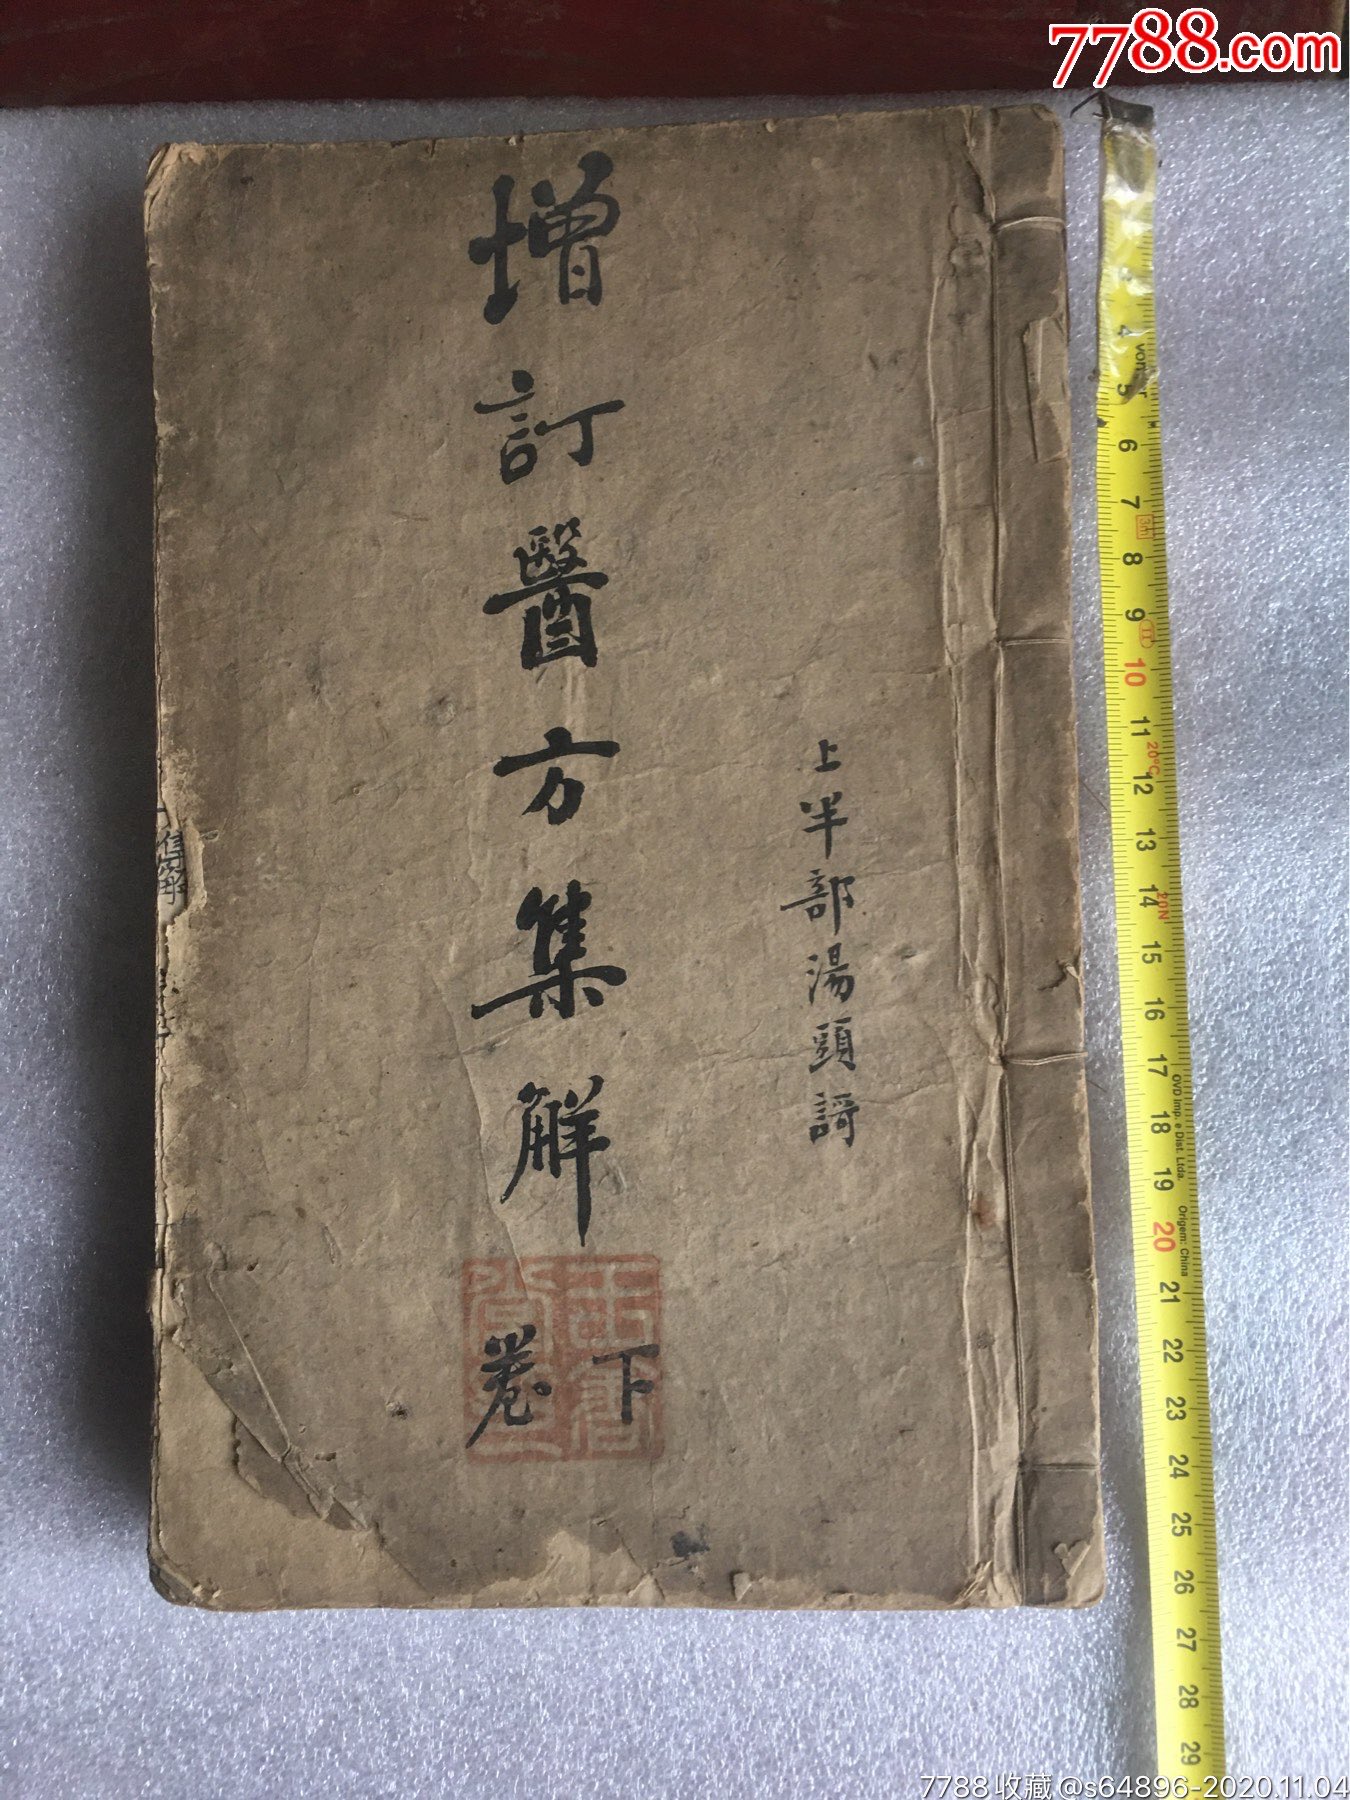 7788.com
上半部湯頭謌
增訂醫方集解
下卷
4
5
6
7
3m
8
9
II
10
11
20°C
12
13
14
20N
15
16
17
OVD Imp. e Dist. Ltda.
18
19
Origem: China
20
21
22
23
24
25
26
27
28
29
7788收藏@s64896-2020.11.04